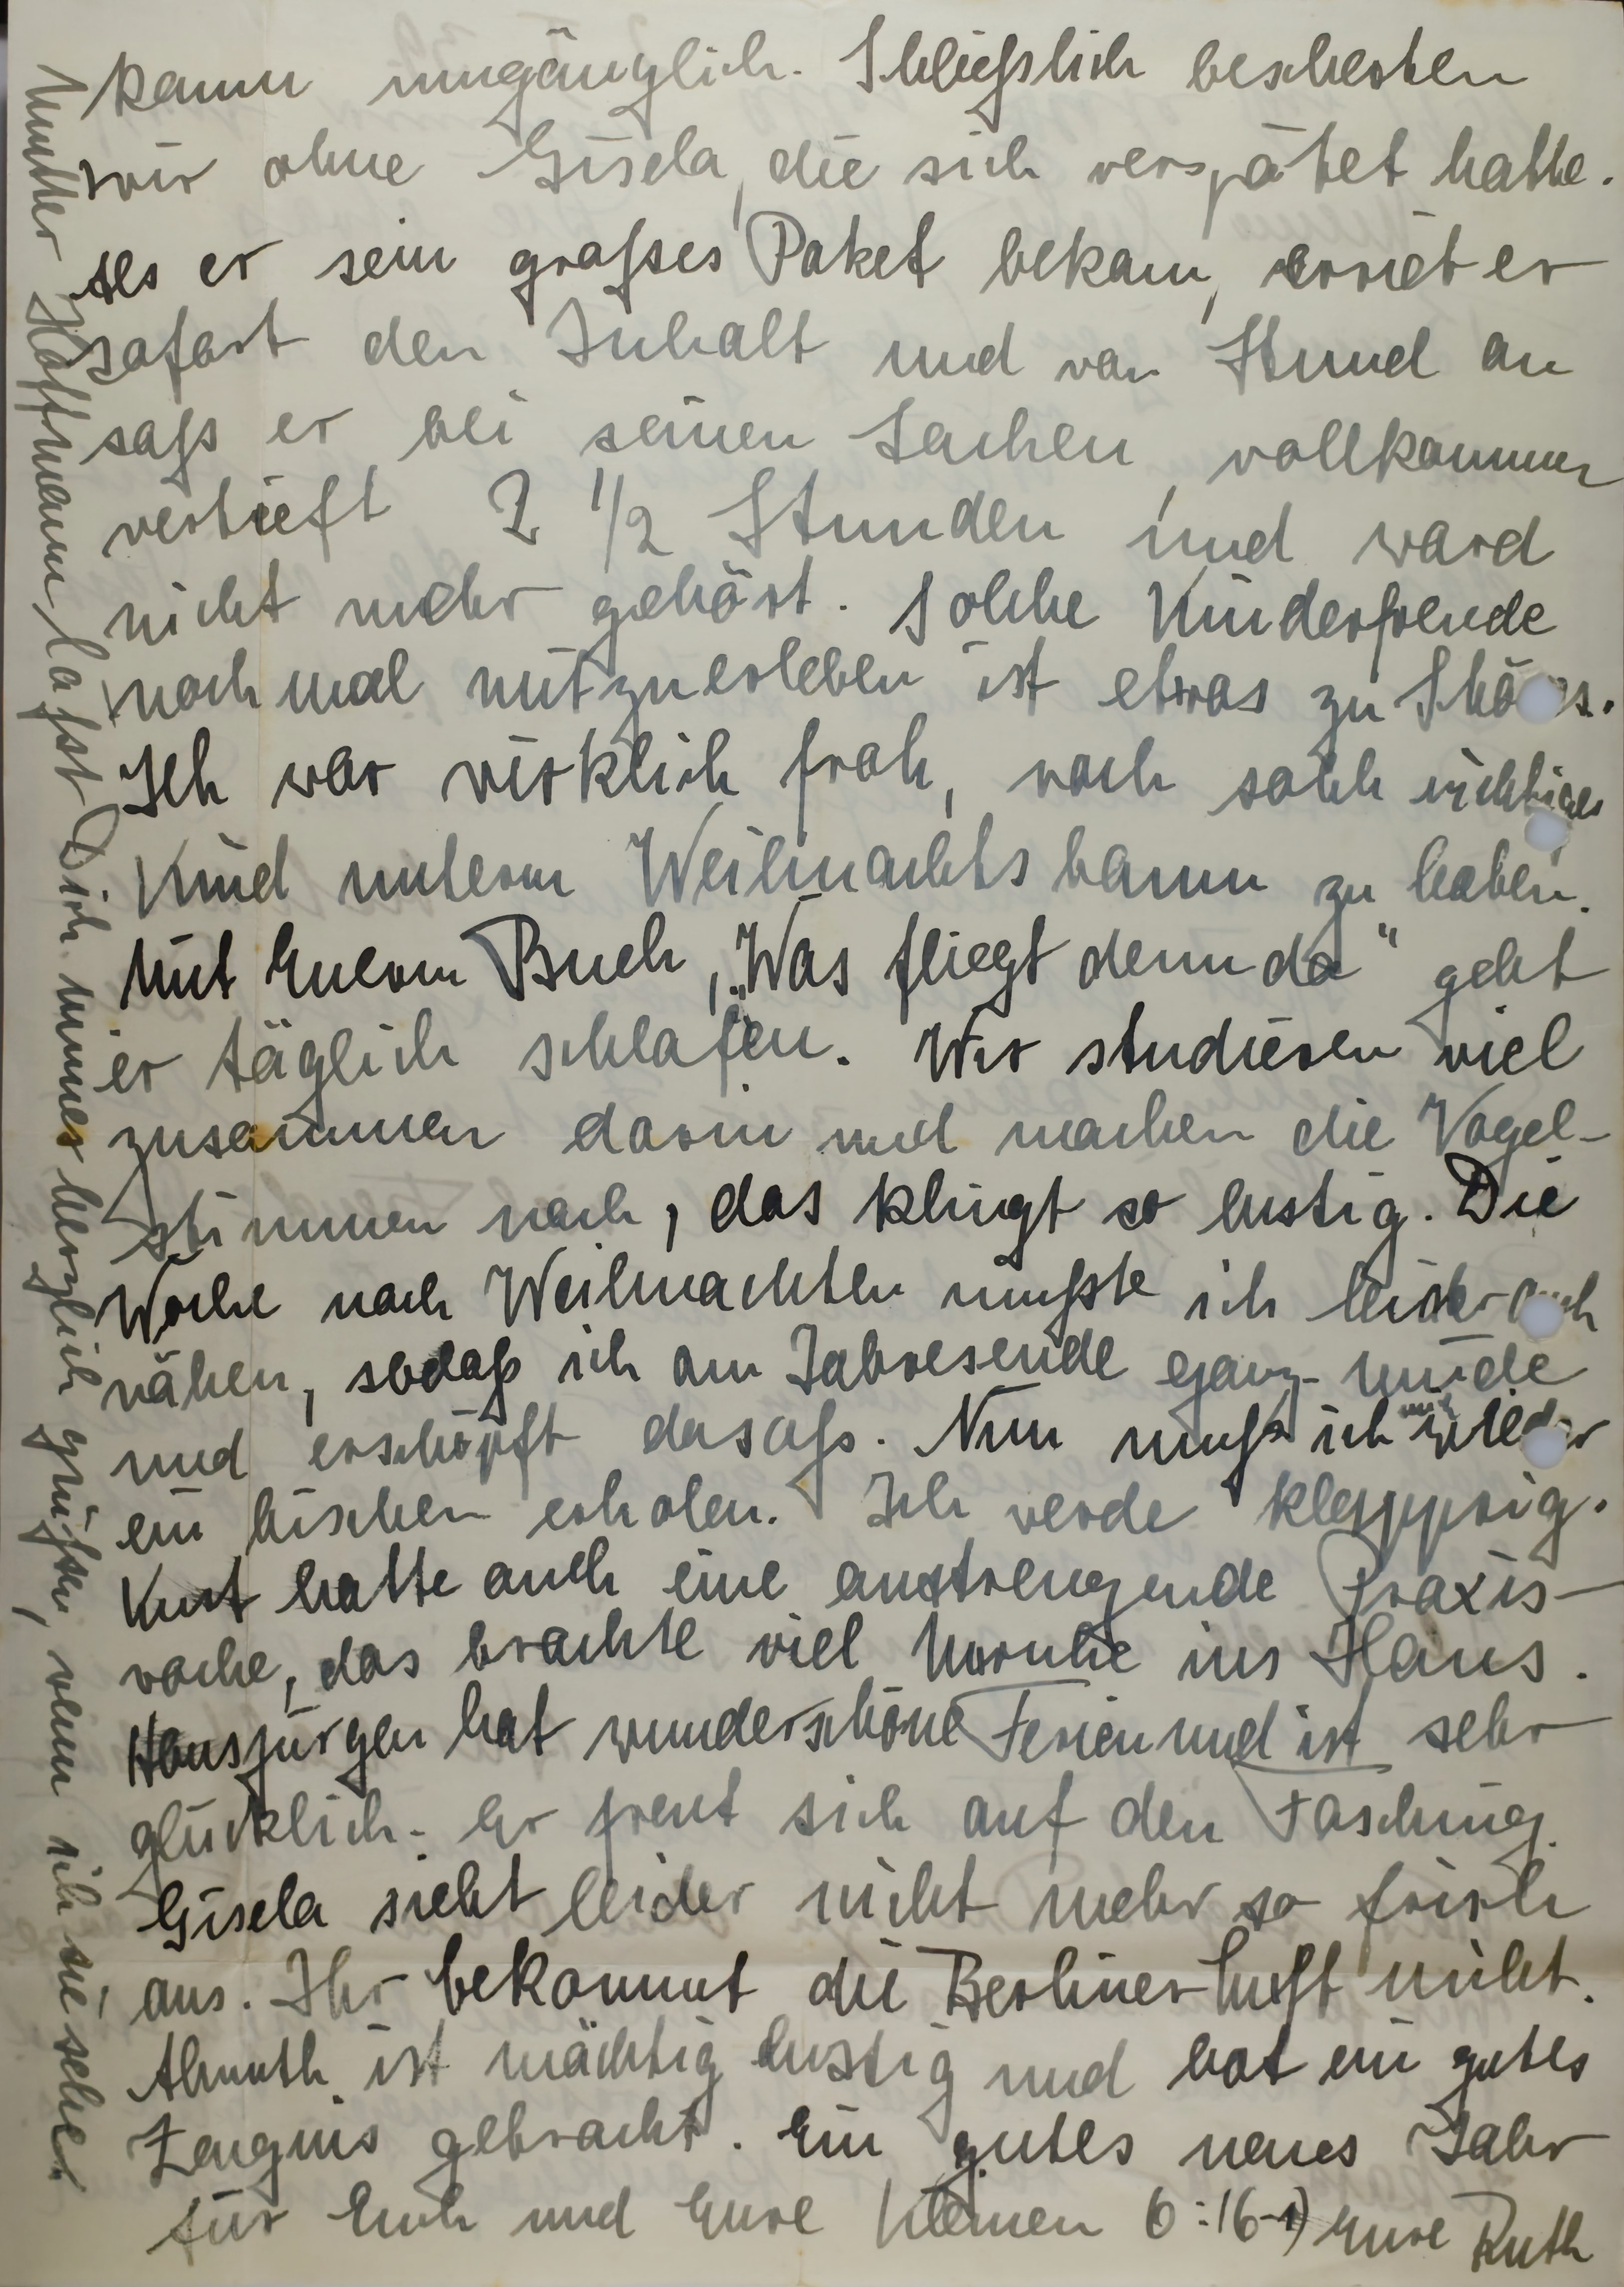 kaum umgänglich. Schließlich bescherten
wir ohne Gisela, die sich verspätet hatte.
Als er sein grosses Paket bekam, erriet er
sofort den Inhalt und von Stund an
sass er bei seinen Sachen, vollkommen
vertieft 2 1/2 Stunden und ward
nicht mehr gehört. Solche Kinderfreude
noch mal mitzuerleben ist etwas zu Schönes.
Ich war wirklich froh, noch solch richtiges
Kind unterm Weihnachtsbaum zu haben.
Mit Euerm Buch, „Was fliegt denn da" geht
er täglich schlafen. Wir studieren viel
zusammen darin und machen die Vogel-
stimmen nach, das klingt so lustig. Die
Woche nach Weihnachten musste ich leider auch
nähen, sodaß ich am Jahresende ganz müde
und erschöpft dasass. Nun muss ich mich wieder
ein bischen erholen. Ich werde klapprig.
Kurt hatte auch eine anstrengende Praxis-
woche, das brachte viel Unruhe ins Haus.
Hansjürgen hat wunderschöne Ferien und ist sehr
glücklich. Er freut sich auf den Fasching.
Gisela sieht leider nicht mehr so frisch
aus. Ihr bekommt die Berliner Luft nicht.
Almuth ist mächtig lustig und hat ein gutes
Zeugnis gebracht. Ein gutes neues Jahr
für Euch und Eure Kleinen 6:16-1) Eure Ruth
Mutter Hoffmann lässt Dich immer herzlich grüßen, wenn ich sie sehe.